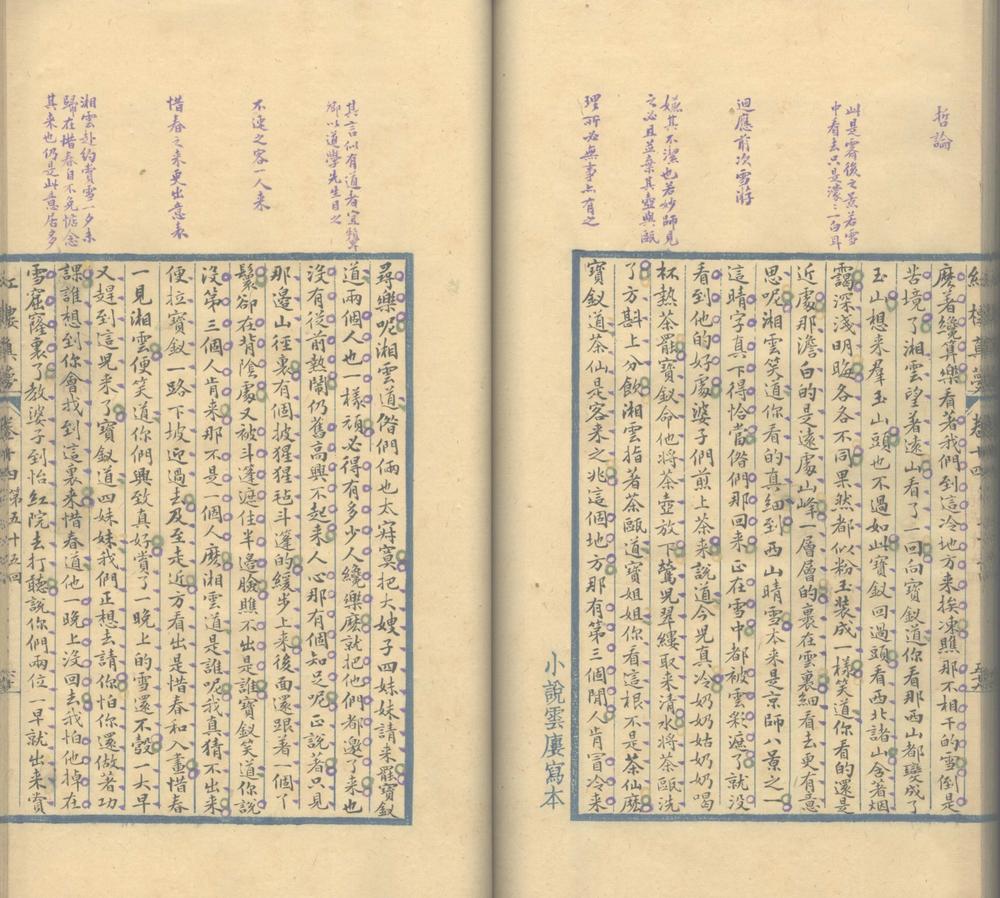 哲論
此是霽後之景若雪
中看去只是濛濛一白耳
迴應前次雪游
嫌其不潔也若妙師見
之必且並棄其壺與甌
理所必無事上有之
麽着纔算樂看著我們到這冷地方來挨凍瞧那不相干的雪倒是
苦境了湘雲望着遠山看了一回向寶釵道你看那西山都變成了
玉山想來羣玉山頭也不過如此寶釵回過頭看西北諸山含著烟
靄深淺明晦各各不同果然都似粉玉裝成一樣笑道你看的還是
近處那澹白的是遠處山峰一層層的裹在雲裏細看去更有意
思呢湘雲笑道你看的真細到西山晴雪本來是京師八景之一
這晴字真下得恰當偺們那回來正在雪中都被雲彩遮了就没
看到他的好處婆子們煎上茶來說道今兒真冷奶奶姑奶奶喝
杯熱茶罷寶釵命他將茶壺放下鶯兒翠縷取來清水將茶甌洗
了方斟上分飲湘雲指著茶甌道寶姐姐你看這根不是茶仙麽
寶釵道茶仙是客來之兆這個地方那有第三個閒人肯冒冷來
小說雲廔寫本
其言似有道者宜顰
卿以道學先生目之
不速之客一人來
惜春之來更出意表
湘雲赴約賞雪一夕未
歸在惜春自不免惦念
其來也仍是此意居多
尋樂呢湘雲道偺們倆也太寂寞把大嫂子四妹妹請來罷寶釵
道兩個人也一樣頑必得有多少人纔樂麽就把他們都邀了來也
没有從前熱鬧仍舊高興不起來人心那有個知足呢正說着只見
那邊山徑裏有個披猩猩毡斗篷的緩步上來後面還跟着一個丫
鬟卻在背陰處又被斗篷遮住半邊臉瞧不出是誰寶釵笑道你說
没第三個人肯來那不是一個人麽湘雲道是誰呢我真猜不出來
便拉寶釵一路下坡迎過去及至走近方看出是惜春和入畫惜春
一見湘雲便笑道你們興致真好賞了一晚上的雪還不彀一大早
又趕到這兒來了寶釵道四妹妹我們正想去請你怕你還做著功
課誰想到你會找到這裏來惜春道他一晚上沒回去我怕他掉在
雪窟窿裏了教婆子到怡紅院去打聽說你們兩位一早就出來賞
紅樓真夢 卷十四第五十五回